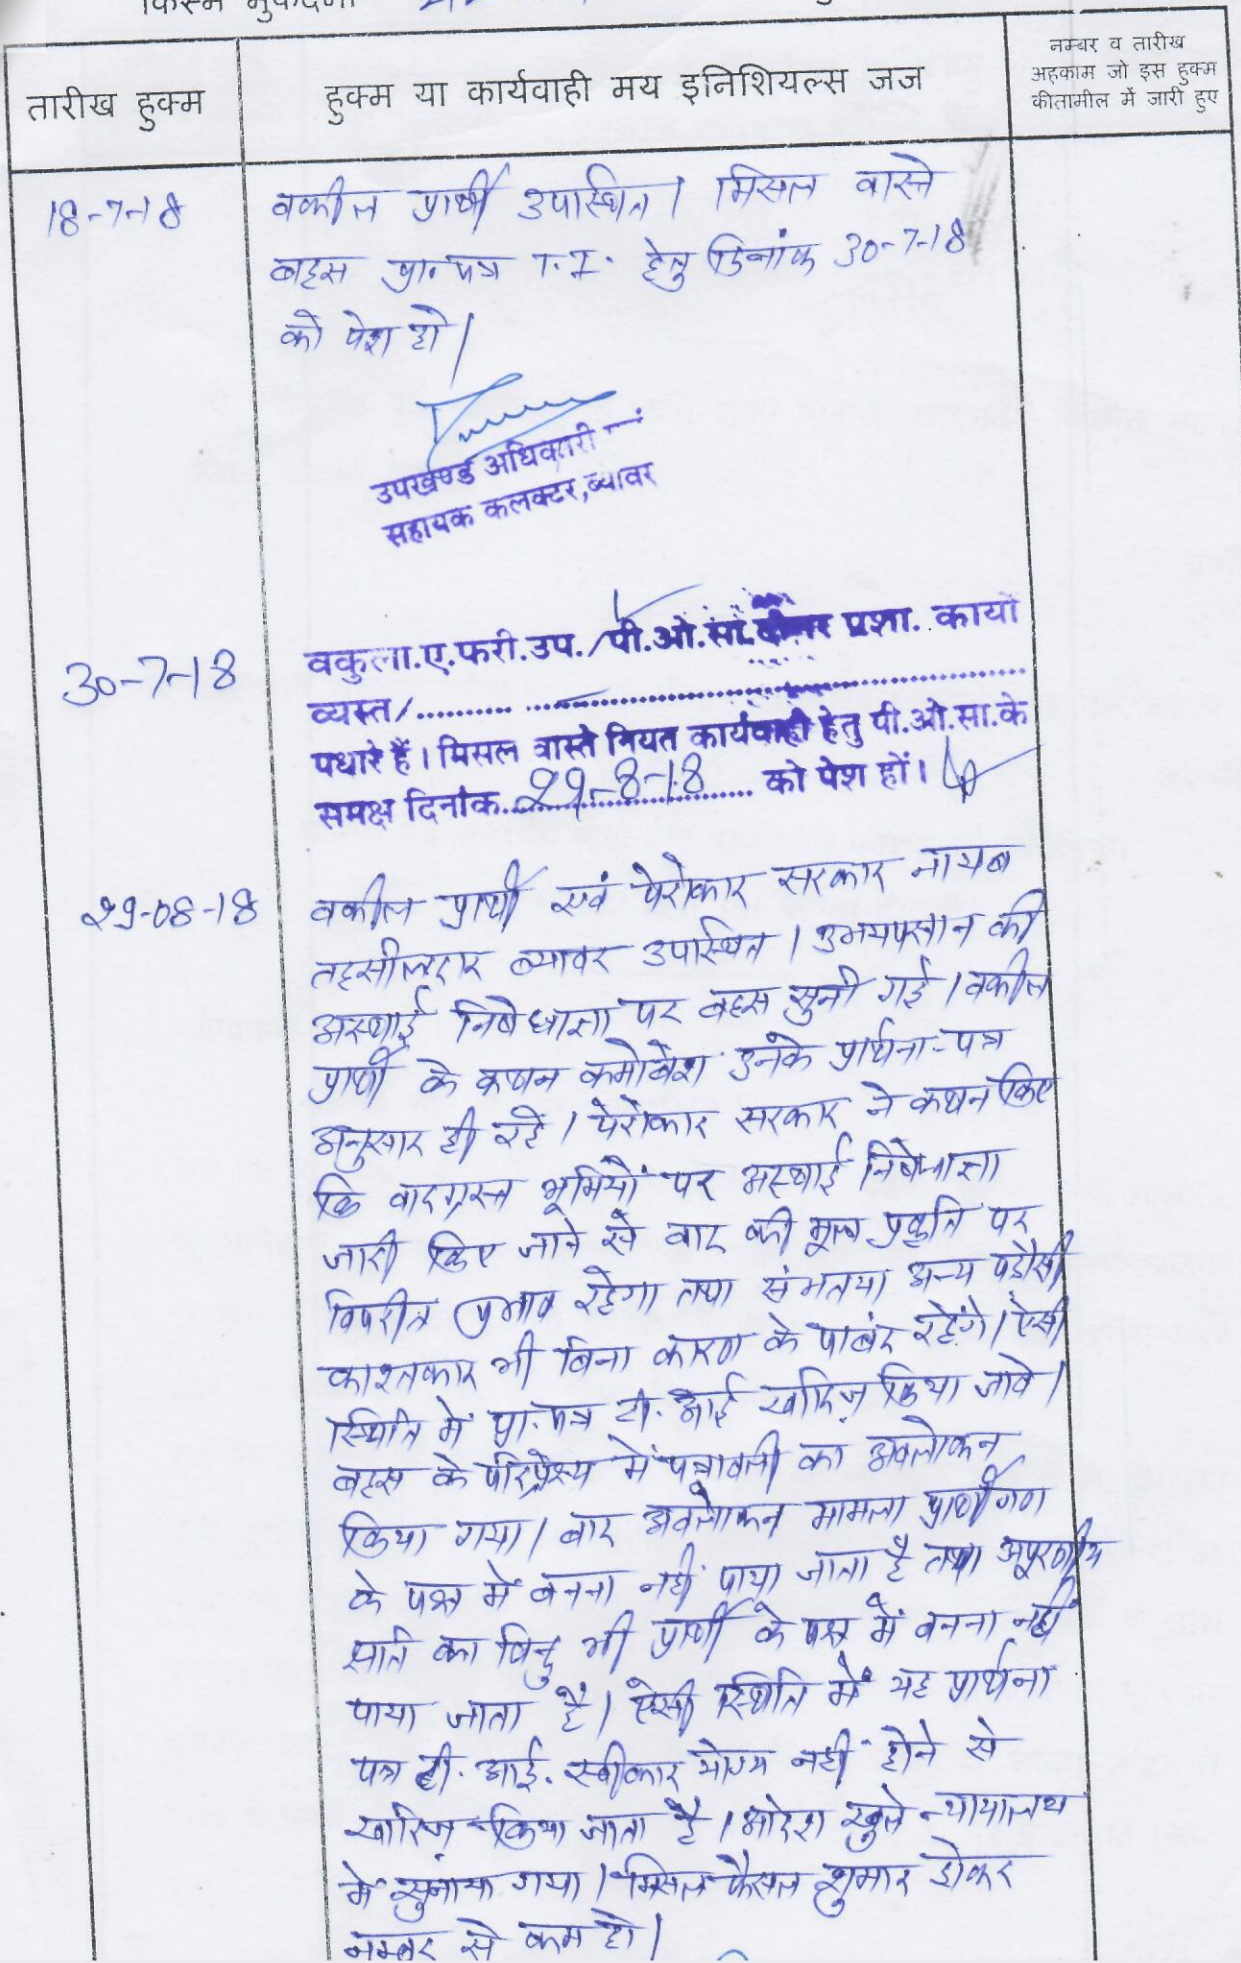 किस्म मुकदमा
तारीख हुक्म
हुक्म या कार्यवाही मय इनिशियल्स जज
नम्बर व तारीख
अहकाम जो इस हुक्म
की तामील में जारी हुए
18-7-18
वकील प्रार्थी उपस्थित। मिसल वास्ते
बहस प्रा. पत्र T.I. हेतु दिनांक 30-7-18
को पेश हो।
उपखण्ड अधिकारी
सहायक कलक्टर, ब्यावर
30-7-18
वकुला.ए.फरी.उप./पी.ओ.सा. प्रशा. कार्यो
व्यस्त/..........
पधारे हैं। मिसल वास्ते नियत कार्यवाही हेतु पी.ओ.सा.के
समक्ष दिनांक 29-8-18 को पेश हों।
29-08-18
वकील प्रार्थी एवं पेरोकार सरकार नायब
तहसीलदार ब्यावर उपस्थित। उभयपक्षान की
अस्थाई निषेधाज्ञा पर बहस सुनी गई। वकील
प्रार्थी के कथन कमोबेश उनके प्रार्थना-पत्र
अनुसार ही रहे। पेरोकार सरकार ने कथन किए
कि वादग्रस्त भूमियों पर अस्थाई निषेधाज्ञा
जारी किए जाने से वाद की मूल प्रकृति पर
विपरीत प्रभाव रहेगा तथा संभतया अन्य पडौसी
काश्तकार भी बिना कारण के पाबंद रहेंगे। ऐसी
स्थिति में प्रा. पत्र टी. आई खारिज किया जावे।
बहस के परिप्रेक्ष्य में पत्रावली का अवलोकन
किया गया। बाद अवलोकन मामला प्रार्थीगण
के पक्ष में बनना नहीं पाया जाता है तथा अपूरणीय
क्षति का बिन्दु भी प्रार्थी के पक्ष में बनना नहीं
पाया जाता है। ऐसी स्थिति में यह प्रार्थना
पत्र टी. आई. स्वीकार योग्य नहीं होने से
खारिज किया जाता है। आदेश खुले न्यायालय
में सुनाया गया। मिसल फैसल शुमार होकर
नम्बर से कम हो।